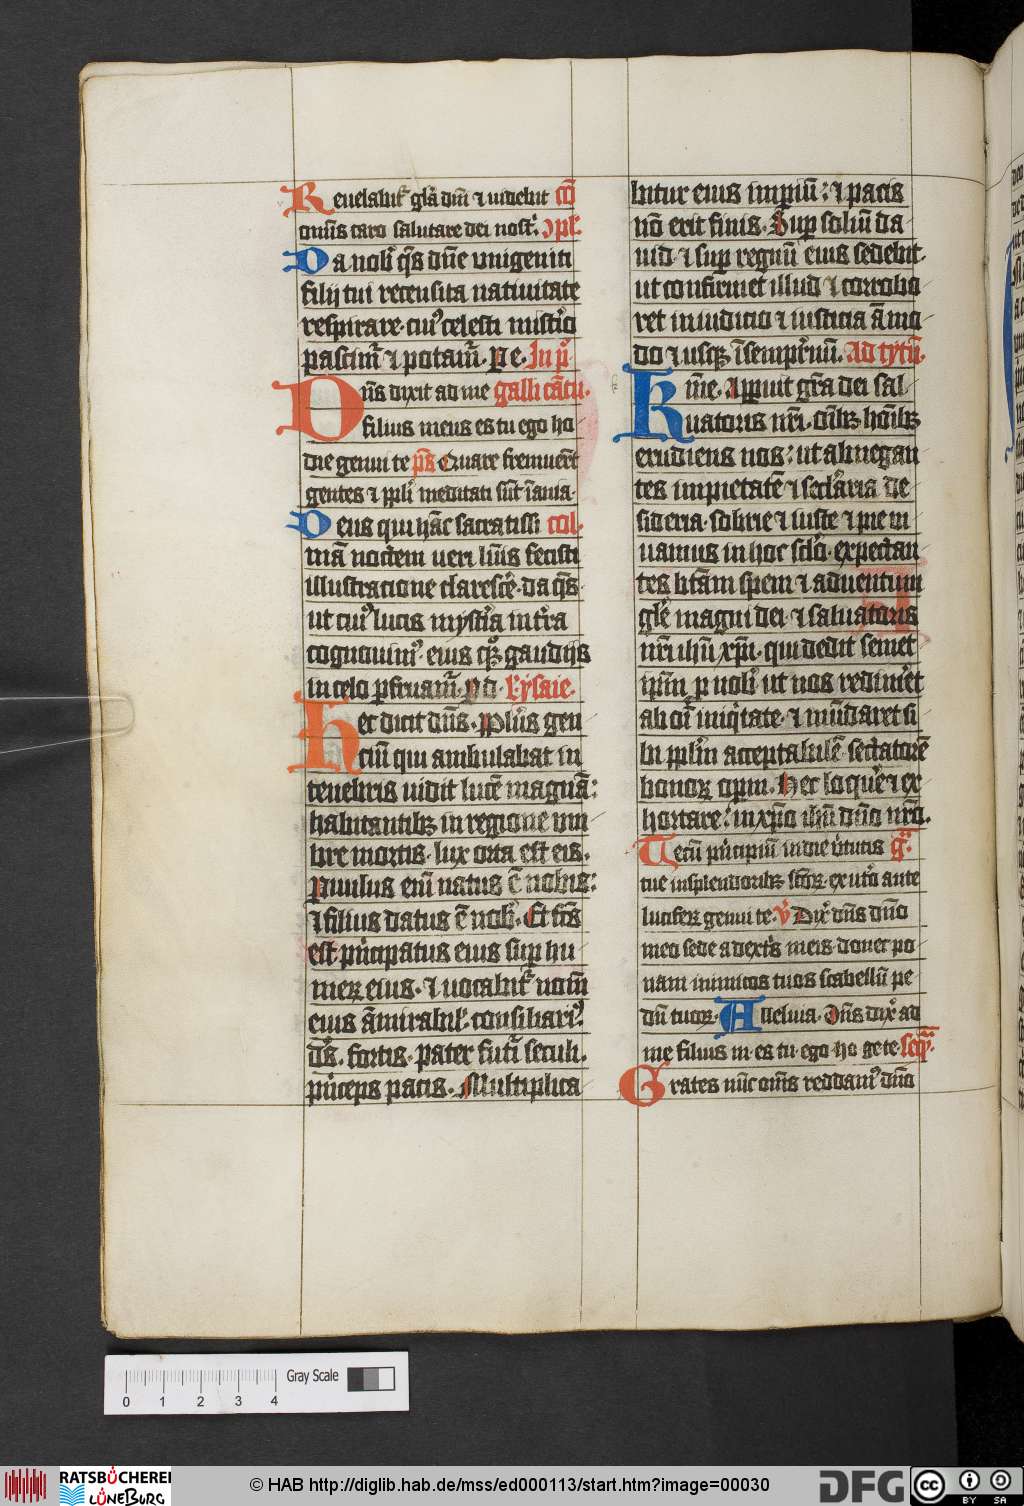 Reuelabit᷑ gl̄a dn̄i ⁊ uidebit cō
omīs caro salutare dei nost᷑. ɔpl᷑.
Da nob᷑ q̄s dn̄e vnigeniti
filij tui recensita natiuitate
respirare. cui᷒ celesti mist᷑io
pascim᷑ ⁊ potam᷑. Pe. In p᷑
Dn̄s dixit ad me galli cātu.
filius meus es tu ego ho
die genui te ps̄ Quare fremuerūt
gentes ⁊ ppl᷑i meditati sūt īania.
Deus qui hāc sacratissi col.
mā noctem ueri lūis fecisti
illustracione claresc᷑e. da q̄s.
ut cui᷒ lucis myst᷑ia in t᷑ra
cognouim᷒. eius qꝫ gaudijs
in celo pfruam᷑. Pd. l᷑. ysaie.
Hec dicit dn̄s. Ppl᷑us gen
ciū qui ambulabat in
tenebris uidit lucē magnā:
habitantibꝫ in regione vm
bre mortis. lux orta est eis.
Puulus eni᷑ natus ē nobis:
⁊ filius datus ē nob᷑. Et fc̄s
est p᷑ncipatus eius sup hu
merꝝ eius. ⁊ uocabit᷑ nom̄
eius āmirabil᷑. consiliari᷒.
ds̄. fortis. pater fut᷑i seculi.
p᷑nceps pacis. Multiplica
bitur eius impiū: ⁊ pacis
nō erit finis. Sup soliū da
uid. ⁊ sup regnū eius sedebit.
ut confirmet illud ⁊ corrobo
ret in iudicio ⁊ iusticia āmo
do ⁊ usqꝫ ī sempit᷑nū. Ad tytū.
Kim̄e. Appuit gr̄a dei sal
uatoris nr̄i. oīibꝫ hoīibꝫ
erudiens nos: ut abnegan
tes impietatē ⁊ secl᷑aria de
sideria. sobrie ⁊ iuste ⁊ pie ui
uamus in hoc scl᷑o. expectan
tes btām spem ⁊ aduentum
gl᷑e magni dei. ⁊ saluatoris
nr̄i ih̄u xp̄i. qui dedit semet
ip̄m p nob᷑. ut nos redim᷑et
ab oī iniq᷑tate. ⁊ mūdaret si
bi ppl᷑m acceptabilē. sectatorē
bonoꝝ opm. Hec loquē ⁊ ex
hortare: in xp̄o ih̄u dn̄o nr̄o.
Tecū p᷑ncipiū in die v᷑tutis g᷑.
tue in splendoribꝫ sc̄oꝝ. ex ut᷑o ante
luciferꝝ genui te. v᷑ Dix᷑ dn̄s dn̄o
meo sede a dext᷑s meis. donec po
nam inimicos tuos scabellū pe
dū tuoꝝ. Alleluia. Dn̄s dix᷑ ad
me filius m. es tu. ego. ho. ge te. seq̄.
Grates nūc om̄s reddam᷒ dn̄o
0 1 2 3 4 Gray Scale
RATSBÜCHEREI LÜNEBURG
© HAB http://diglib.hab.de/mss/ed000113/start.htm?image=00030
DFG
cc BY SA